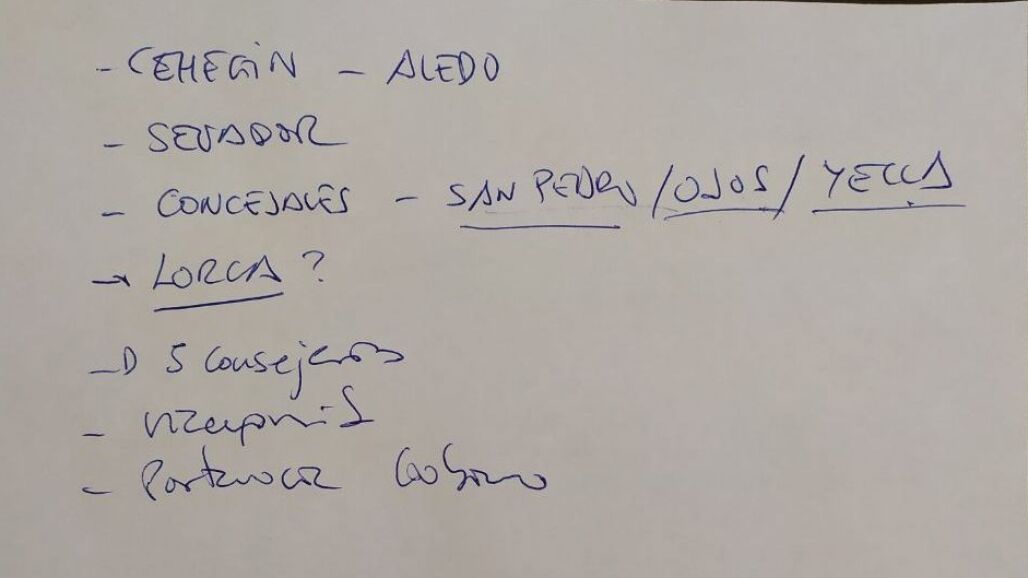 - CEHEGIN - ALEDO
- SENADOR
- CONCEJALES - SAN PEDRO / OJOS / YECLA
→ LORCA ?
→ 5 Consejeros
- Vicepresid
- Portavoz Gobierno